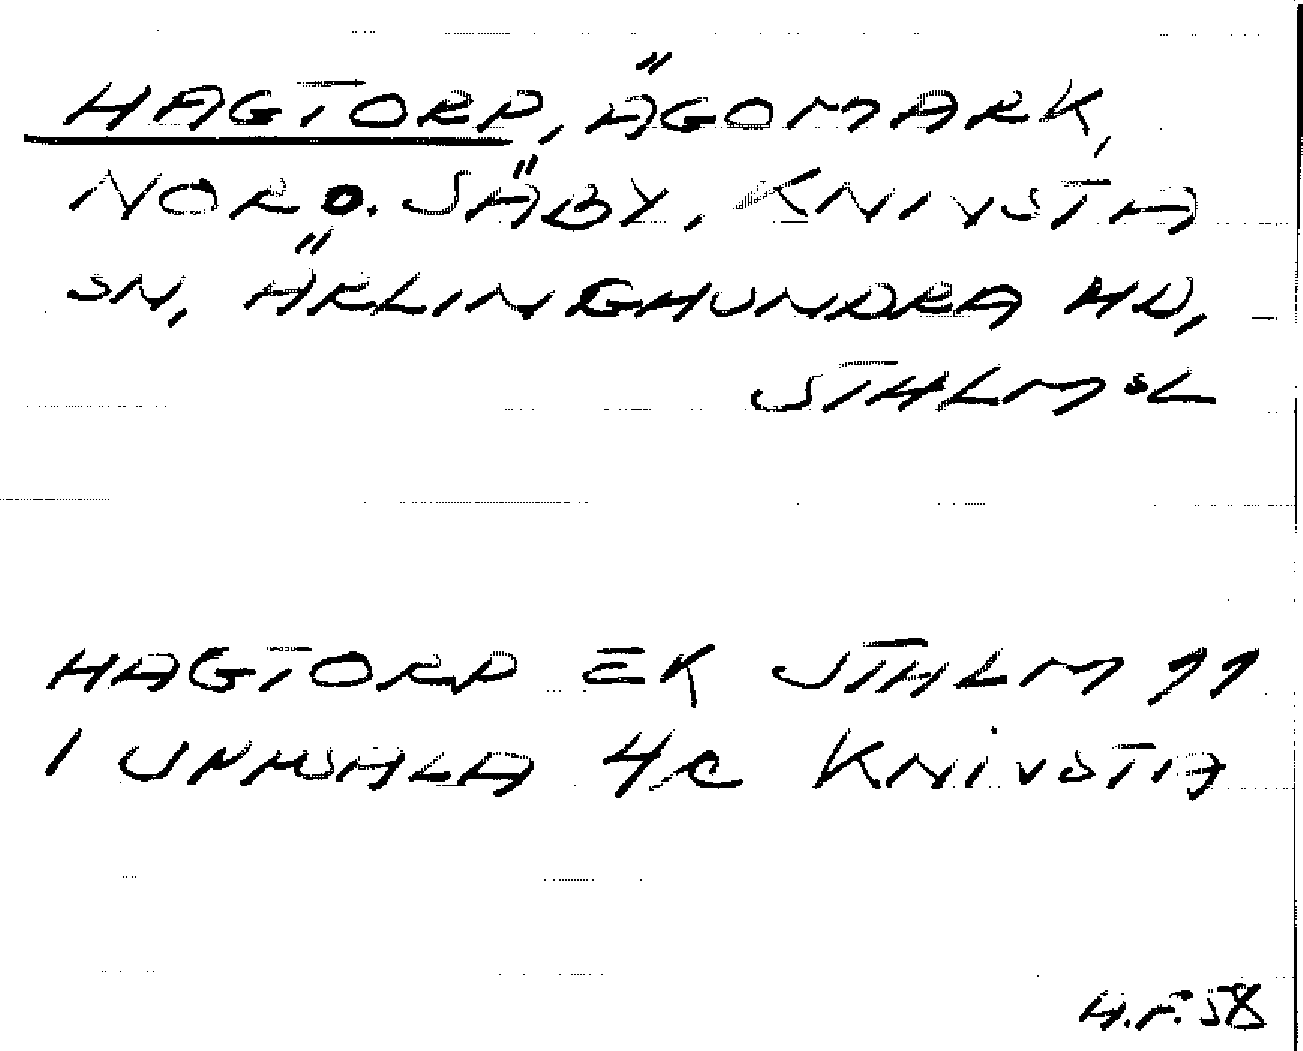 HAGTORP, ÄGOMARK,
NORD. SÄBY, KNIVSTA
SN, ÄRLINGHUNDRA HD,
STHLMSL
HAGTORP EK STHLM 99
1 UPPSALA 4C KNIVSTA
H.F. 58